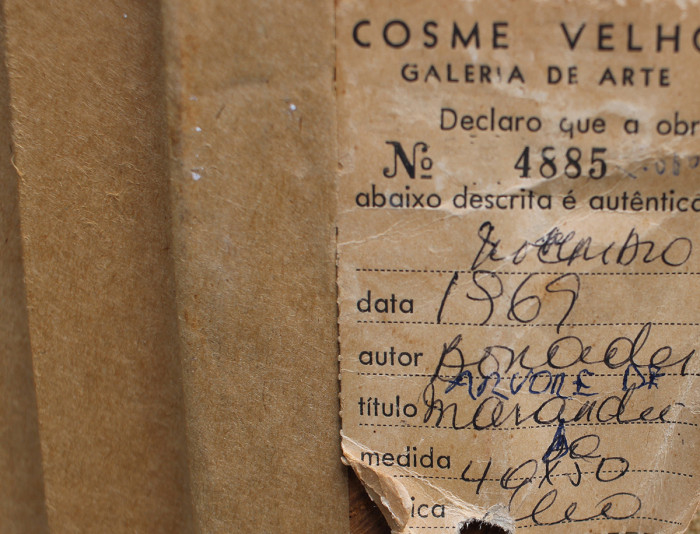 COSME VELHO
GALERIA DE ARTE
Declaro que a obr
Nº 4885
abaixo descrita é autêntica
data 1969
autor Bonadei
ARVORE DE
título
medida 40x50
ica óleo